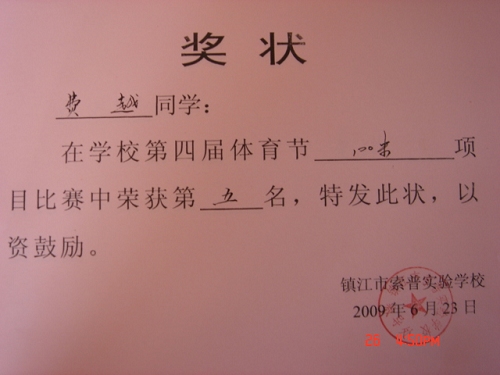 奖状
费越同学：
在学校第四届体育节100米项
目比赛中荣获第五名，特发此状，以
资鼓励。
镇江市索普实验学校
2009年6月23日